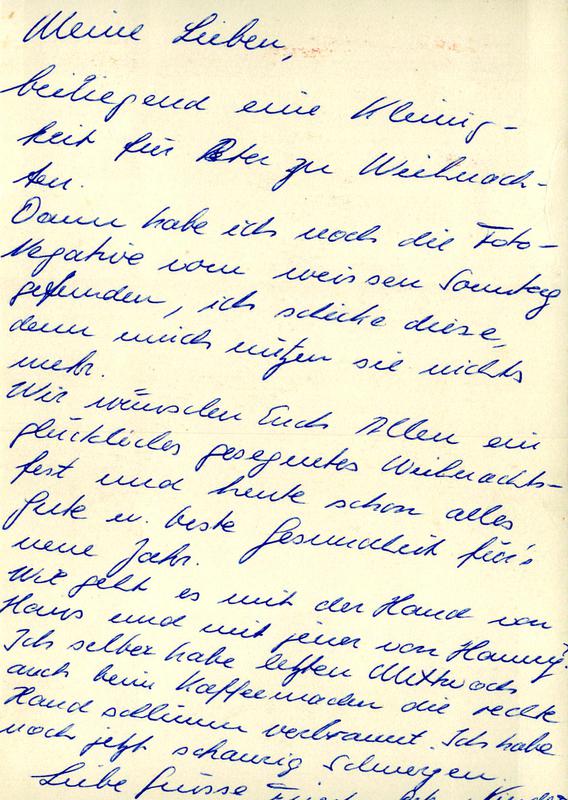 Meine Lieben,
beiliegend eine Kleinig-
keit für Peter zu Weihnach-
ten.
Dann habe ich noch die Foto-
Negative vom weissen Sonntag
gefunden, ich schicke diese,
denn mich nützen sie nichts
mehr.
Wir wünschen Euch Allen ein
glückliches gesegnetes Weihnachts-
fest und heute schon alles
Gute u. beste Gesundheit für's
neue Jahr.
Wie geht es mit der Hand von
Hans und mit jener von Hanny?
Ich selber habe letzten Mittwoch
auch beim Kaffeemachen die rechte
Hand schlimm verbrannt. Ich habe
noch jetzt schaurig Schmerzen.
Liebe Grüsse